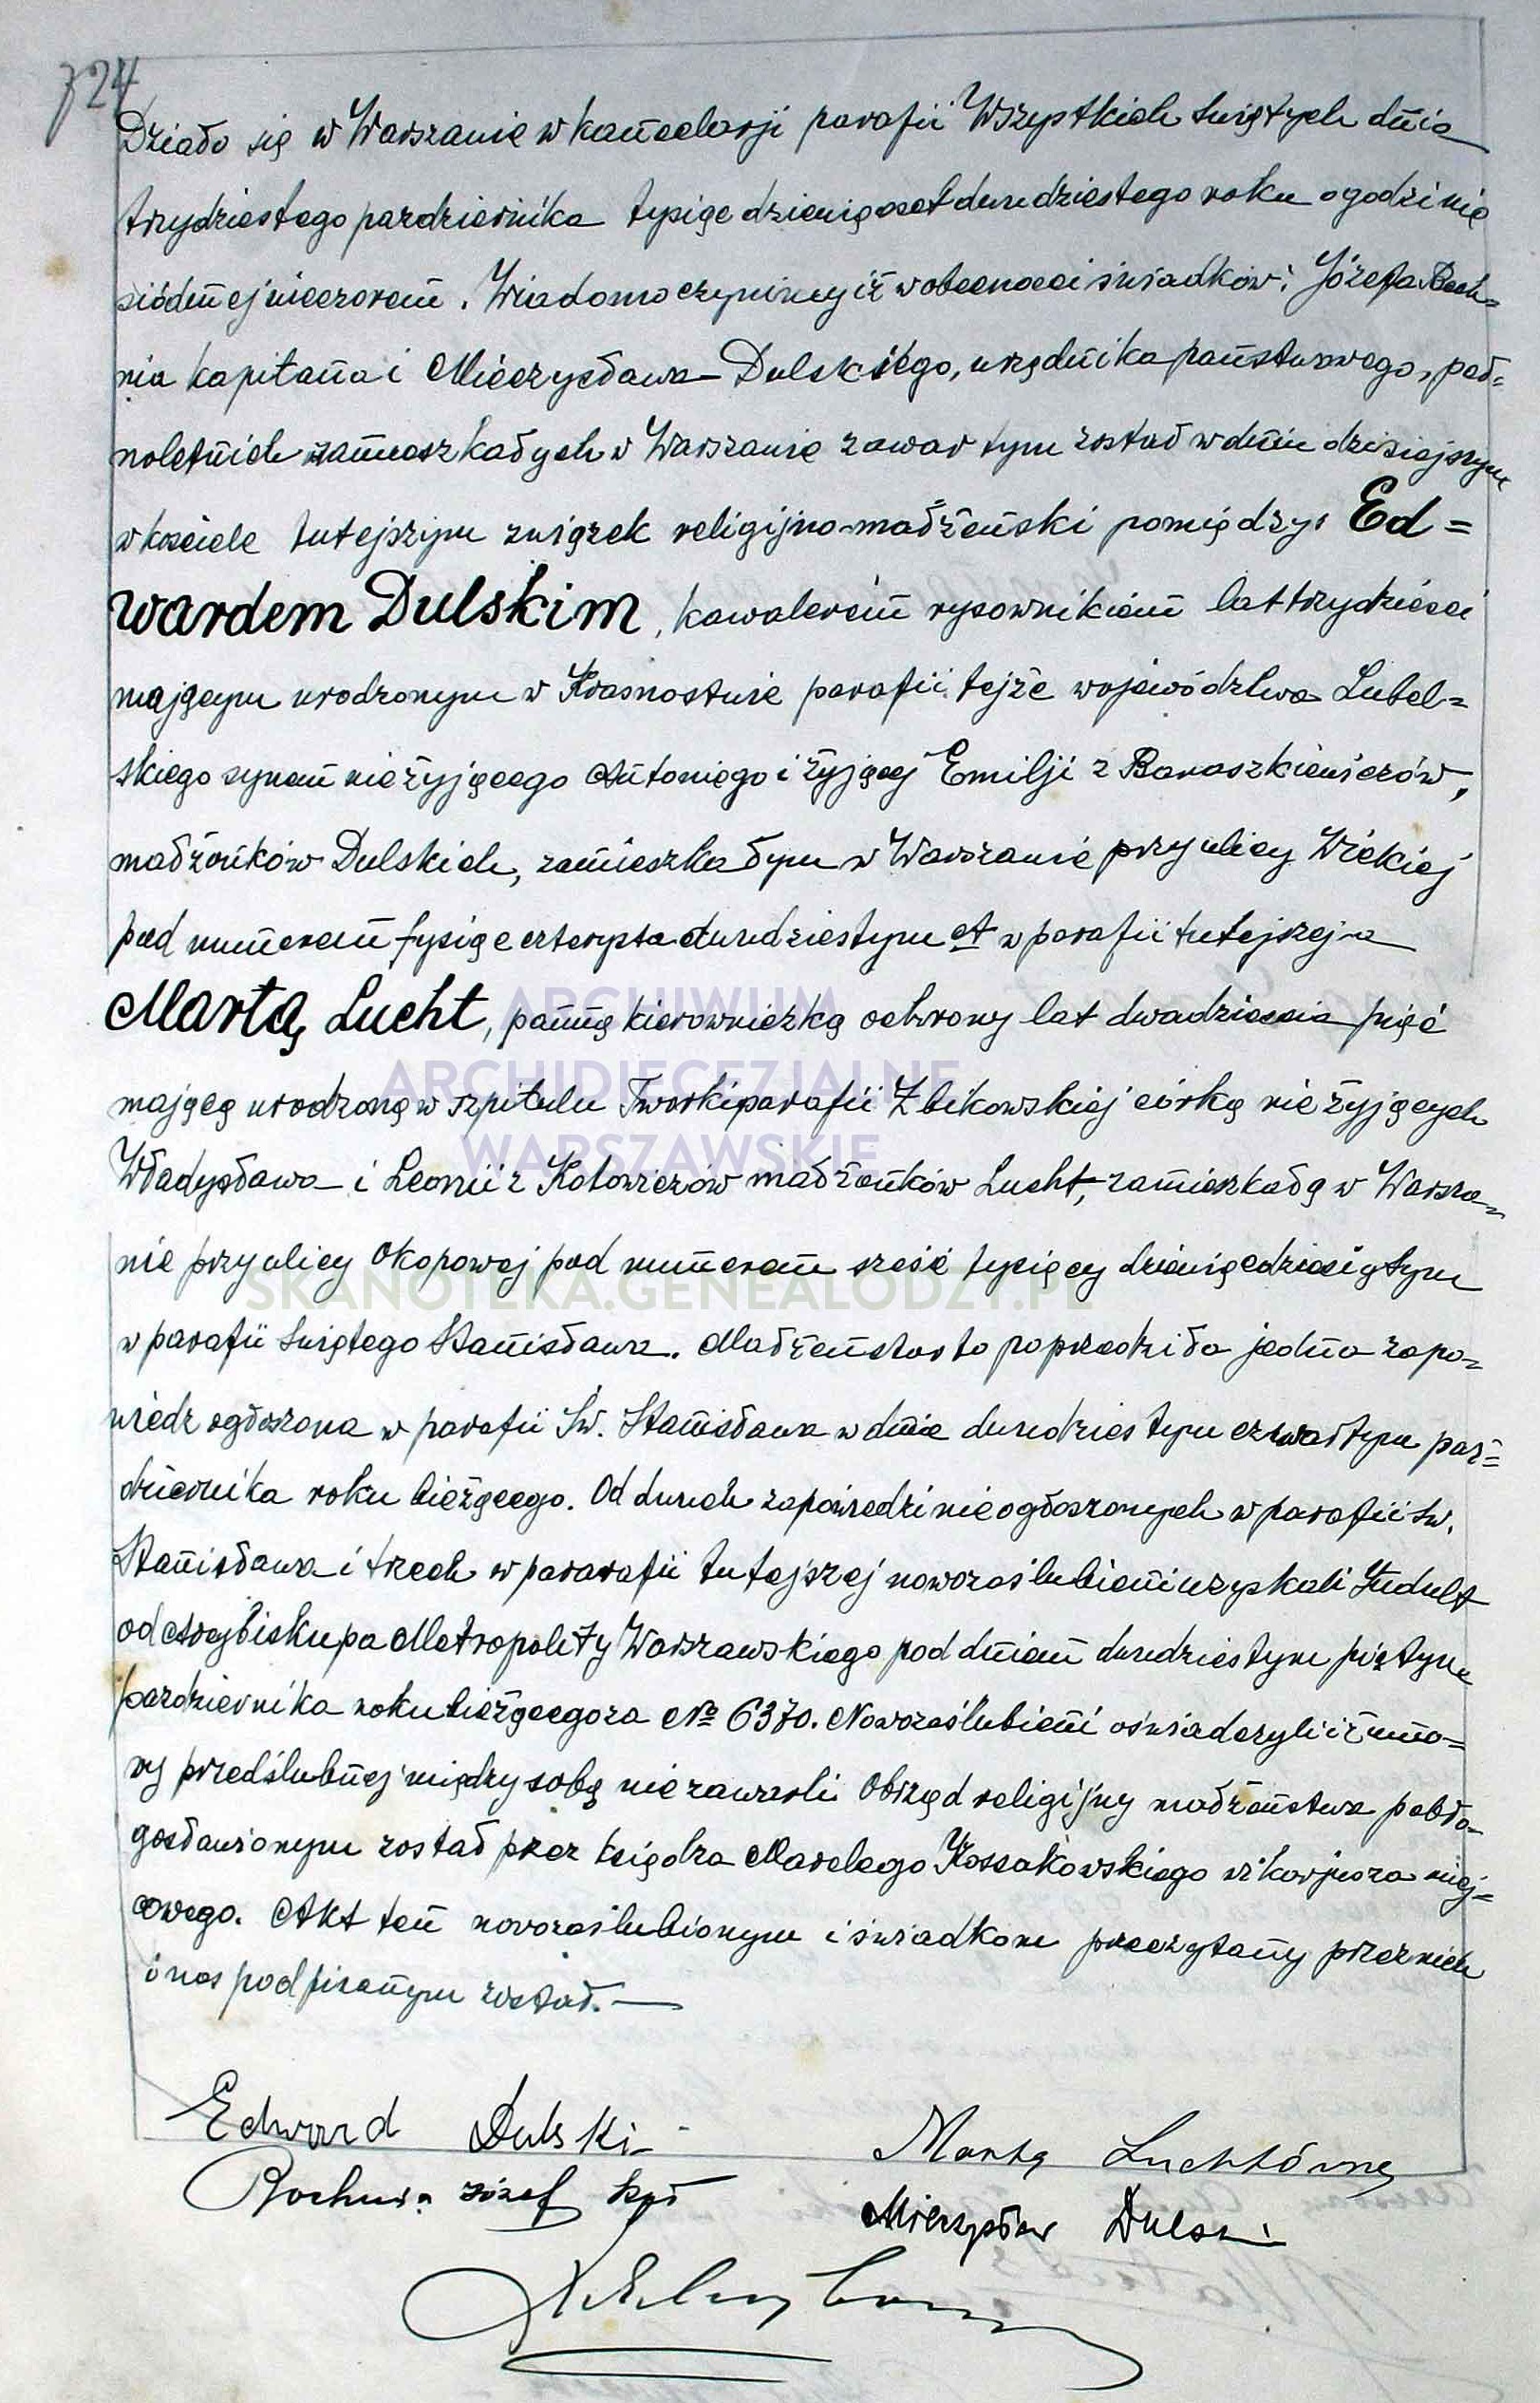 724
Działo się w Warszawie w kancelarji parafii Wszystkich Świętych dnia
trzydziestego pazdziernika tysiąc dziewięcset dwudziestego roku o godzinie
siódmej wieczorem. Wiadomo czynimy iż w obecności świadków: Józefa Roch=
nia kapitana i Mieczysława Dulskiego, urzędnika państwowego, peł=
noletnich zamieszkałych w Warszawie zawartym został w dniu dzisiejszym
w kościele tutejszym związek religijno-małżeński pomiędzy: Ed=
wardem Dulskim, kawalerem rysownikiem lat trzydzieści
mającym urodzonym w Krasnostwie parafii tejże województwa Lubel=
skiego synem nieżyjącego Antoniego i żyjącej Emilji z Baraszkiewiczów,
małżonków Dulskich, zamieszkałym w Warszawie przy ulicy Wickiej
pod numerem tysiąc czterysta dwudziestym A w parafii tutejszej a
Martą Lucht, panną kierowniczką ochrony lat dwadzieścia pięć
mającą urodzoną w szpitalu Tworki parafii Zbikowskiej córką nieżyjących
Władysława i Leonii z Kotowiczów małżonków Lucht, zamieszkałą w Warsza=
wie przy ulicy Okopowej pod numerem sześć tysięcy dziewięćdziesiątym
w parafii Świętego Stanisława. Małżeństwo to poprzedziła jedna zapo=
wiedz ogłoszona w parafii Św. Stanisława w dniu dwudziestym czwartym paź=
dziernika roku bieżącego. Od dwuch zapowiedzi nieogłoszonych w parafii św.
Stanisława i trzech w pararafii tutejszej nowozaślubieni uzyskali Indult
od Arcybiskupa Metropolity Warszawskiego pod dniem dwudziestym piątym
pazdziernika roku bieżącego za № 6370. Nowozaślubieni oświadczyli iż umo=
wy przedślubnej między sobą nie zawarli. Obrzęd religijny małżeństwa pobło=
gosławionym został przez księdza Marcelego Kossakowskiego wikarjusza miej=
cowego. Akt ten nowozaślubionym i świadkom przeczytany przez nich
i nas podpisanym został.
Edward Dulski
Marta Luchtówna
Józef kpt
Mieczysław Dulski
ARCHIWUM
ARCHIDIECEZJALNE
WARSZAWSKIE
SKANOTEKA.GENEALODZY.PL